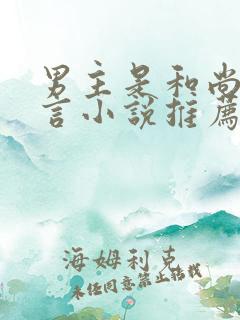 男主是和尚
言小说推薦
海姆利克
未经同意禁止转载